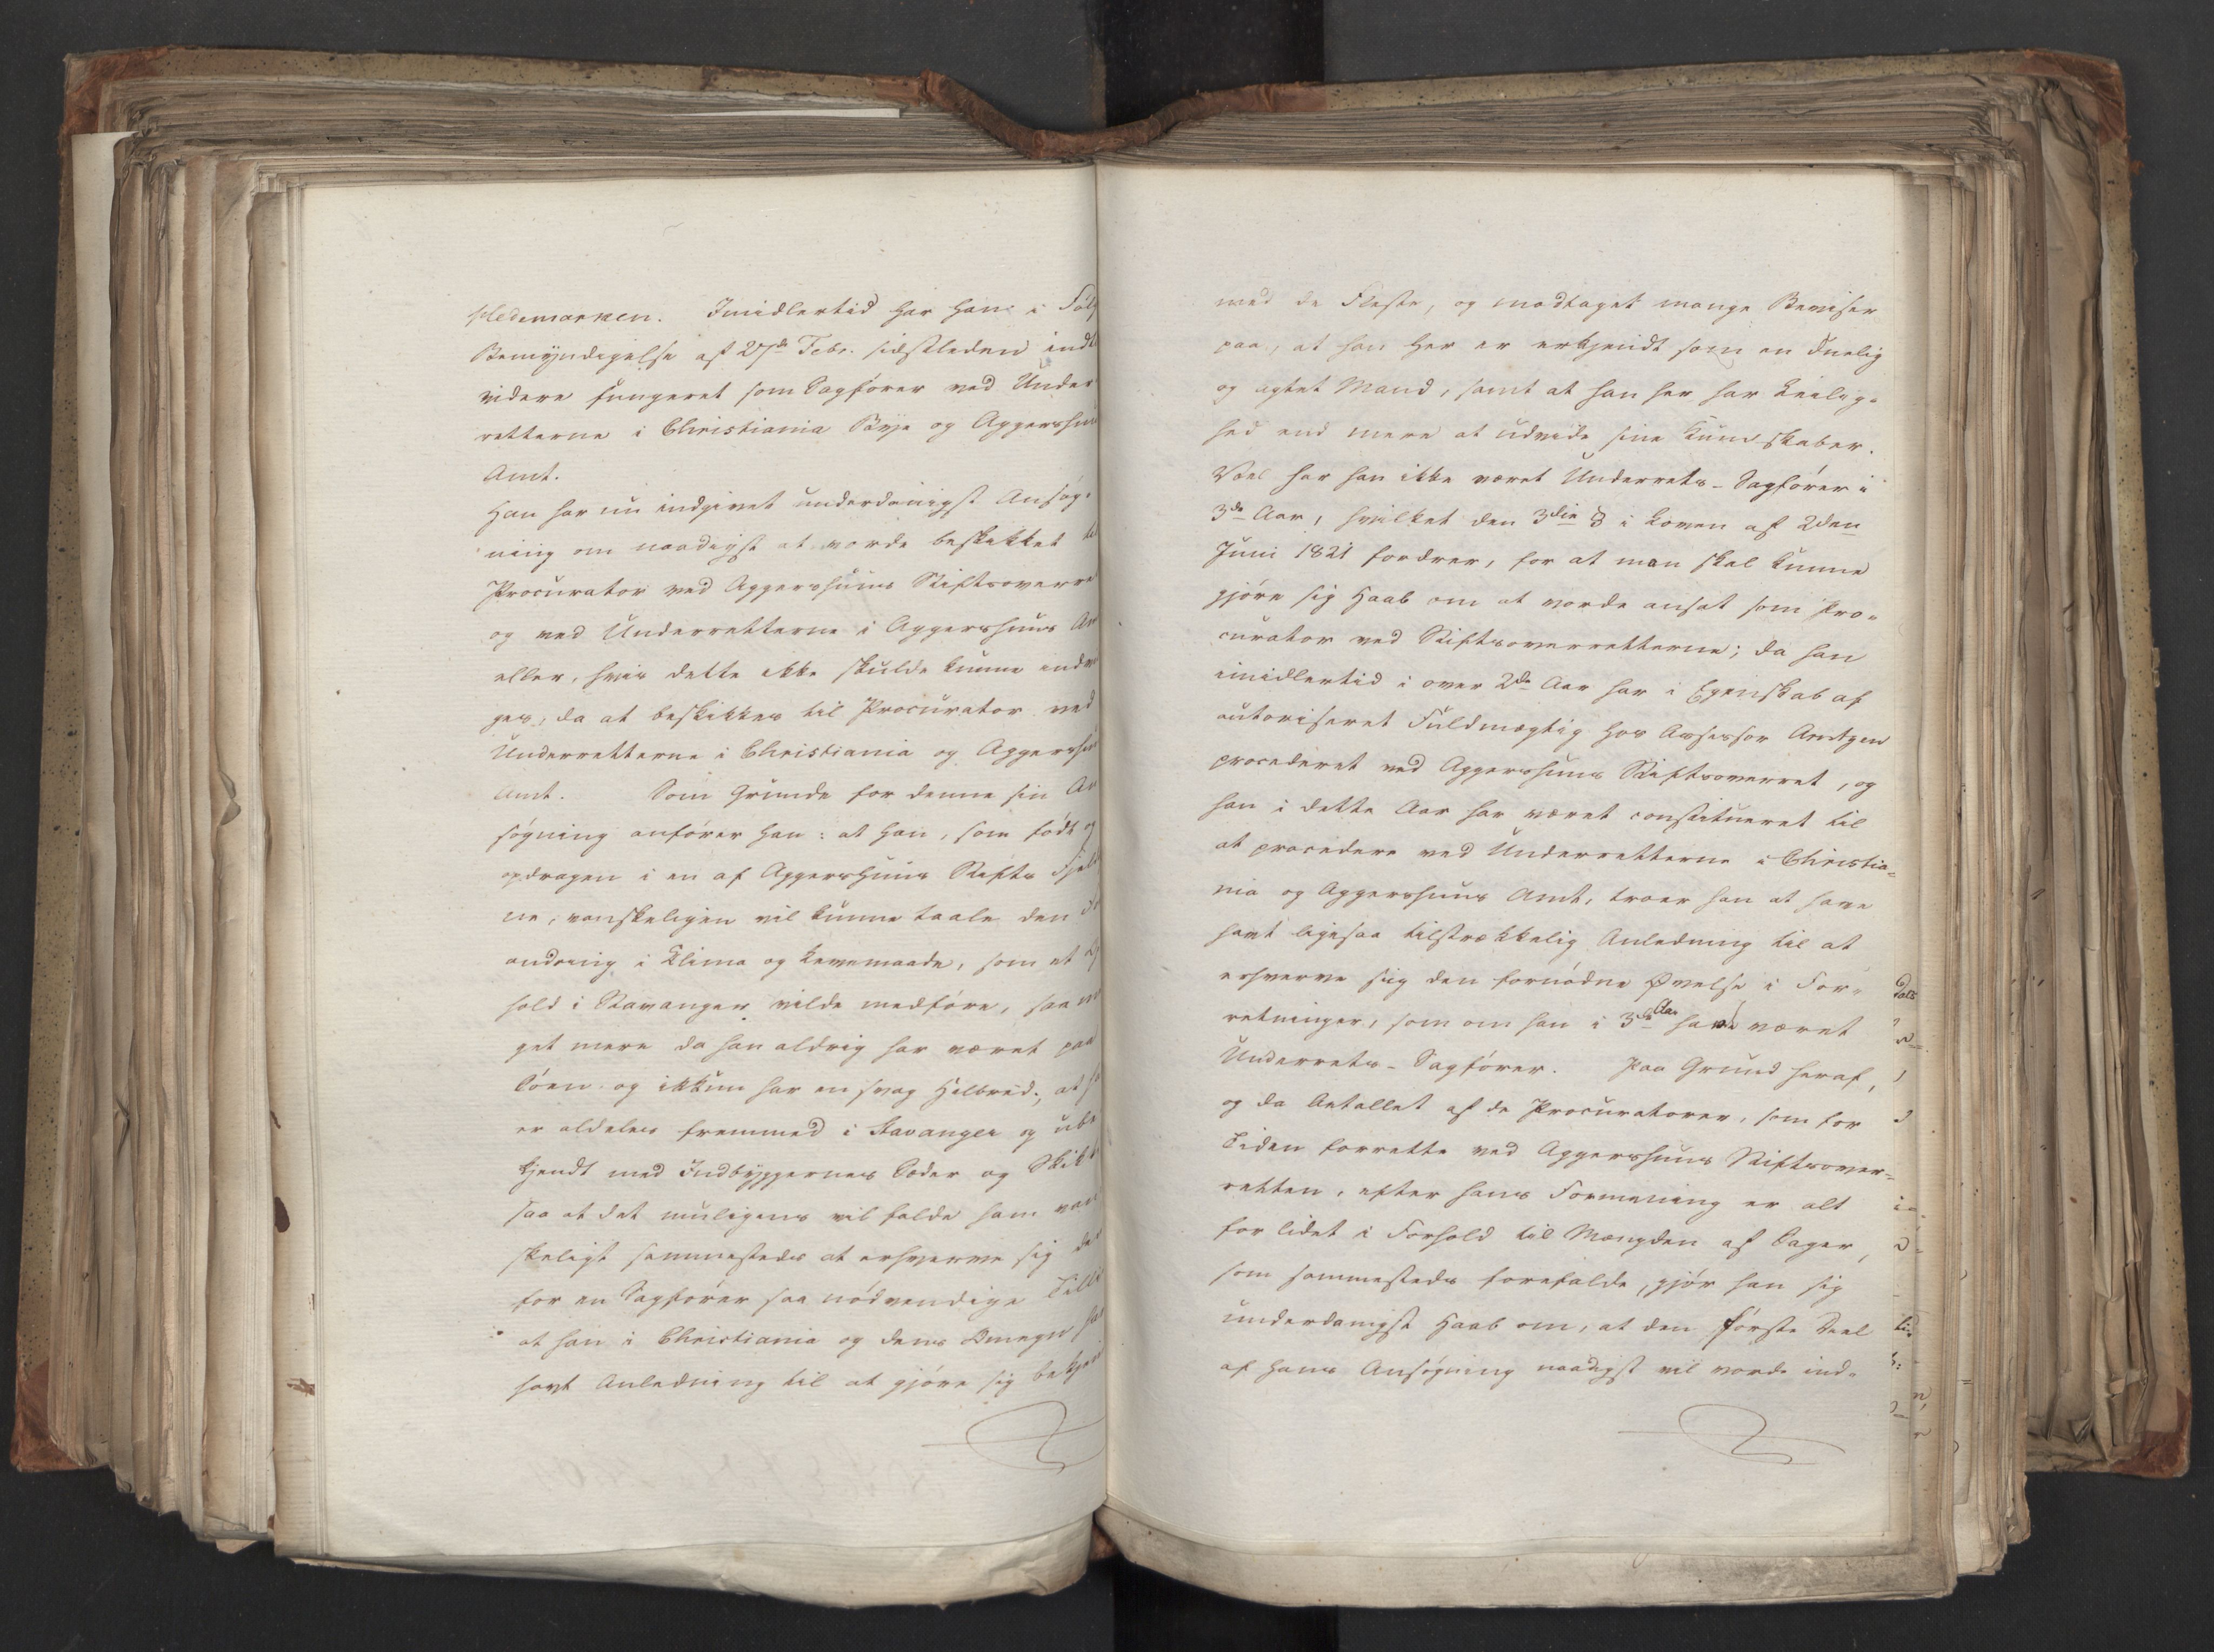 Hedemarken. Imidlertid har han i Følg
Bemÿndigelse af 27de Febr. sidstleden indt
videre fungeret som Sagfører ved Under
retterne i Christiania Bÿe og Aggershuus
Amt.
Han har nu indgivet underdanigst Ansøg-
ning om naadigst at vorde beskikket til
Procurator ved Aggershuus Stiftsoverre
og ved Underretterne i Aggershuus Am
eller, hvis dette ikke skulde kunne indvi
ges, da at beskikkes til Procurator ved
Underretterne i Christiania og Aggershuus
Amt. Som Grunde for denne sin An
søgning anfører han: at han, som født og
opdragen i en af Aggershuus Stifts Fjeld
ne, vanskeligen vil kunne taale den
andring i Clima og Levemaade, som et Op
hold i Stavanger vilde medføre, saa me
get mere da han aldrig har været paa
Søen og ikkun har en svag Helbred; at han
er aldeles fremmed i Stavanger og ube
kjendt med Indbÿggernes Sæder og Skikke
saa at det muligens vil falde ham van
skeligt sammesteds at erhverve sig den
for en Sagfører saa nødvendige Tillid
at han i Christiania og dens Omegn har
havt Anledning til at gjøre sig bekjendt
med de Fleste, og modtaget mange Beviser
paa, at han her er erkjendt som en duelig
og agtet Mand, samt at han her har Leilig-
hed end mere at udvide sine Kundskaber.
Vel har han ikke været Underrets-Sagfører i
3de Aar, hvilket den 3die § i Loven af 2den
Juni 1821 fordrer, for at man skal kunne
gjøre sig Haab om at vorde ansat som Pro-
curator ved Stiftsoverretterne; da han
imidlertid i over 2de Aar har i Egenskab af
autoriseret Fuldmægtig hos Assessor Arntzen
procederet ved Aggershuus Stiftsoverret, og
han i dette Aar har været constitueret til
at procedere ved Underretterne i Christia-
nia og Aggershuus Amt, troer han at have
havt ligesaa tilstrækkelig Anledning til at
erhverve sig den fornødne Øvelse i For-
retninger, som om han i 3de Aar havde været
Underrets-Sagfører. Paa Grund heraf,
og da Antallet af de Procuratorer, som for
Tiden forrette ved Aggershuus Stiftsover-
retten, efter hans Formening er alt
for lidet i Forhold til Mængden af Sager,
som sammesteds forefalde, gjør han sig
underdanigst Haab om, at den første Deel
af hans Ansøgning naadigst vil vorde ind-